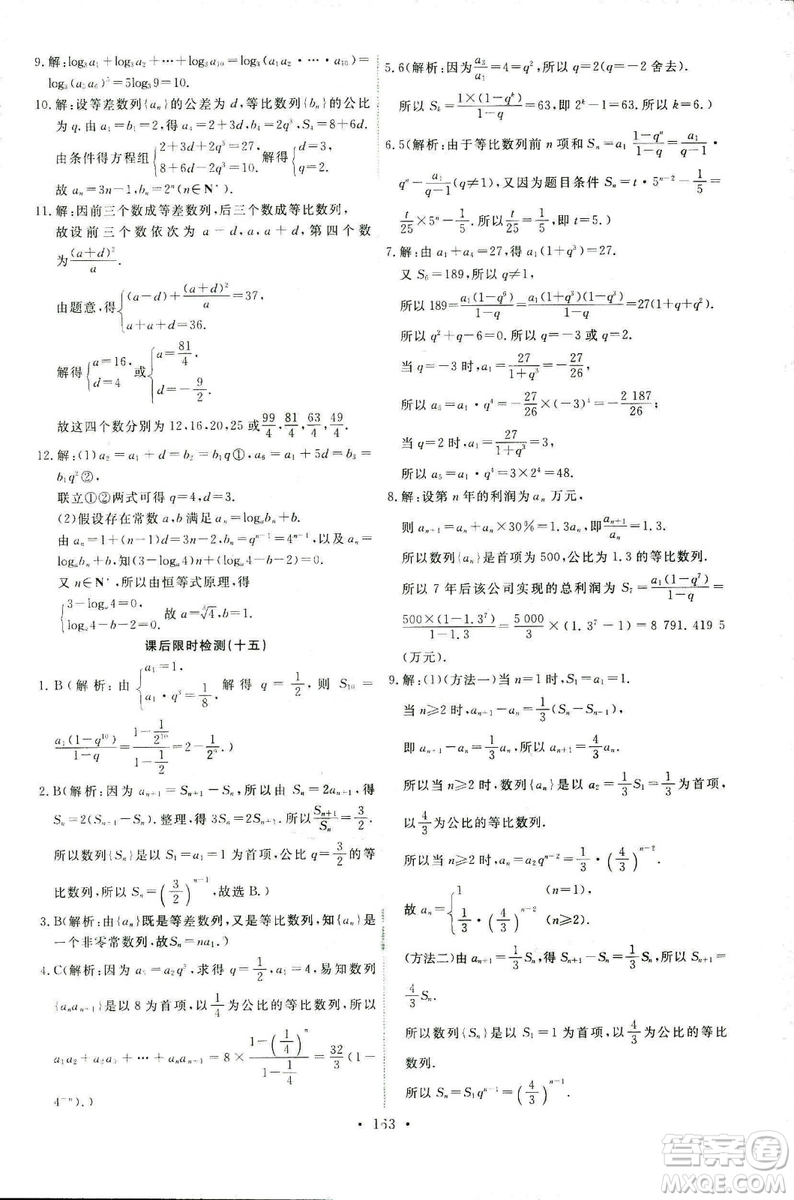 9. 解: log₃a₁+log₃a₂+…+log₃a₁₀=log₃(a₁a₂·…·a₁₀)=
log₃(a₅a₆)⁵=5log₃9=10.
10. 解: 设等差数列{aₙ}的公差为 d, 等比数列{bₙ}的公比
为 q. 由 a₁=b₁=2, 得 a₄=2+3d, b₄=2q³, S₄=8+6d.
由条件得方程组{2+3d+2q³=27, 8+6d-2q³=10. 解得{d=3, q=2.
故 aₙ=3n-1, bₙ=2ⁿ(n∈N*).
11. 解: 因前三个数成等差数列, 后三个数成等比数列,
故设前三个数依次为 a-d, a, a+d, 第四个数
为(a+d)²/a.
由题意, 得{(a-d)+(a+d)²/a=37, a+a+d=36.
解得{a=16, d=4 或{a=81/4, d=-9/2.
故这四个数分别为 12,16,20,25 或 99/4, 81/4, 63/4, 49/4.
12. 解: (1) a₂=a₁+d=b₁q①, a₆=a₁+5d=
b₁q²②,
联立①②两式可得 q=4, d=3.
(2)假设存在常数 a,b 满足 aₙ=logₐbₙ+b.
由 aₙ=1+(n-1)d=3n-2, bₙ=qⁿ⁻¹=4ⁿ⁻¹及 aₙ=
logₐbₙ+b, 知(3-logₐ4)n+logₐ4-b-2=0.
又 n∈N*, 所以由恒等式原理, 得
{3-logₐ4=0, logₐ4-b-2=0. 故 a=∛4, b=1.
课后限时检测(十五)
1. B(解析: 由{a₁=1, a₁·q³=1/8. 解得 q=1/2, 则 S₁₀=
a₁(1-q¹⁰)/(1-q)=(1-1/2¹⁰)/(1-1/2).)
2. B(解析: 因为 aₙ₊₁=Sₙ₊₁-Sₙ, 所以由 Sₙ=2aₙ₊₁, 得
Sₙ=2(Sₙ₊₁-Sₙ). 整理, 得 3Sₙ=2Sₙ₊₁, 所以Sₙ₊₁/Sₙ=3/2.
所以数列{Sₙ}是以 S₁=a₁=1 为首项, 公比 q=3/2的等
比数列, 所以 Sₙ=(3/2)ⁿ⁻¹, 故选 B.)
3. B(解析: 由{aₙ}既是等差数列, 又是等比数列, 知{aₙ}是
一个非零常数列, 故 Sₙ=na₁.)
4. C(解析: 因为 a₅=a₂q³, 求得 q=1/2, a₁=4, 易知数列
{aₙaₙ₊₁}是以 8 为首项, 以1/4为公比的等比数列, 所以
a₁a₂+a₂a₃+…+aₙaₙ₊₁=8×(1-(1/4)ⁿ)/(1-1/4)=32/3(1-
4⁻ⁿ).)
5. 6(解析: 因为a₃/a₁=4=q², 所以 q=2(q=-2 舍去).
所以 Sₖ=1×(1-qᵏ)/(1-q)=63, 即 2ᵏ-1=63, 所以 k=6.)
6. 5(解析: 由于等比数列前 n 项和 Sₙ=a₁(1-qⁿ)/(1-q)=a₁/(q-1)·
qⁿ-a₁/(q-1)(q≠1), 又因为题目条件 Sₙ=t·5ⁿ⁻²-1/5=
t/25×5ⁿ-1/5, 所以t/25=1/5, 所以 t=5.)
7. 解: 由 a₁+a₄=27, 得 a₁(1+q³)=27.
又 S₆=189, 所以 q≠1,
所以 189=a₁(1-q⁶)/(1-q)=a₁(1+q³)(1-q³)/(1-q)=27(1+q+q²).
所以 q²+q-6=0. 所以 q=-3 或 q=2.
当 q=-3 时, a₁=27/(1+q³)=27/(-26)=-27/26,
所以 a₅=a₁·q⁴=-27/26×(-3)⁴=-2 187/26;
当 q=2 时, a₁=27/(1+q³)=3.
所以 a₅=a₁·q⁴=3×2⁴=48.
8. 解: 设第 n 年的利润为 aₙ 万元,
则 aₙ₊₁=aₙ+aₙ×30%=1.3aₙ, 即aₙ₊₁/aₙ=1.3.
所以数列{aₙ}是首项为 500, 公比为 1.3 的等比数列,
所以 7 年后该公司实现的总利润为 S₇=a₁(1-q⁷)/(1-q)=
500×(1-1.3⁷)/(1-1.3)=5 000/3×(1.3⁷-1)=8 791.419 5
(万元).
9. 解: (1)(方法一)当 n=1 时, a₁=1.
当 n≥2 时, aₙ₊₁-aₙ=1/3(Sₙ-Sₙ₋₁),
即 aₙ₊₁-aₙ=1/3aₙ, 所以 aₙ₊₁=4/3aₙ.
所以当 n≥2 时, 数列{aₙ}是以 a₂=1/3S₁=1/3为首项,
以4/3为公比的等比数列.
所以当 n≥2 时, aₙ=a₂qⁿ⁻²=1/3·(4/3)ⁿ⁻².
故 aₙ={1 (n=1), 1/3·(4/3)ⁿ⁻² (n≥2).
(方法二)由 aₙ₊₁=1/3Sₙ, 得 Sₙ₊₁-Sₙ=1/3Sₙ, 所以 Sₙ₊₁=
4/3Sₙ.
所以数列{Sₙ}是以 S₁=1 为首项, 4/3为公比的等比
数列.
所以 Sₙ=S₁qⁿ⁻¹=(4/3)ⁿ⁻¹.
• 163 •
答案圈
MXQE.COM